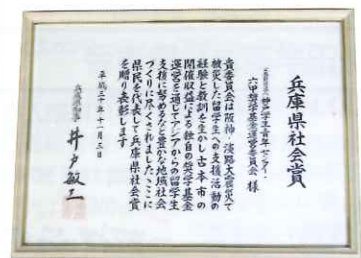 兵庫県社会賞
公益財団法人神戸学生青年センター
六甲奨学基金運営委員会 様
貴委員会は阪神・淡路大震災で
被災した留学生への支援活動の
経験と教訓を生かし古本市の
開催収益による独自の奨学基金
運営を通じてアジアからの留学生
支援に努めるなど豊かな地域社会
づくりに尽くされました ここに
県民を代表して兵庫県社会賞
を贈り表彰します
平成三十年十一月三日
兵庫県知事 井戸敏三